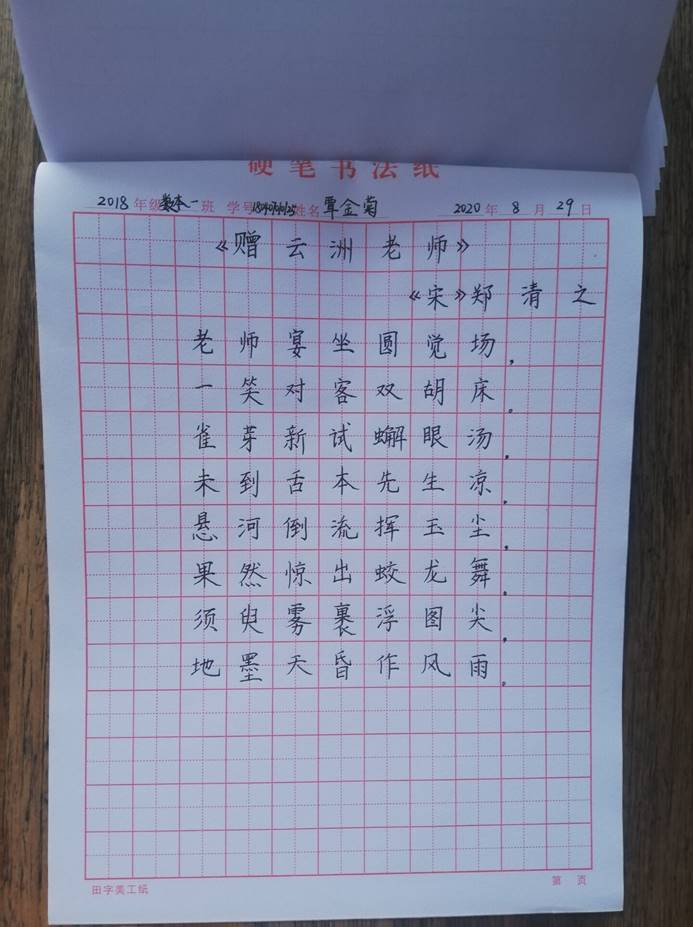 硬笔书法纸
2018年级数本一班 学号 姓名覃金菊 2020年8月29日
《赠云洲老师》
《宋》郑清之
老师宴坐圆觉场，
一笑对客双胡床。
雀芽新试蠏眼汤，
未到舌本先生凉。
悬河倒流挥玉尘，
果然惊出蛟龙舞。
须臾雾裹浮图尖，
地墨天昏作风雨。
田字美工纸 第 页